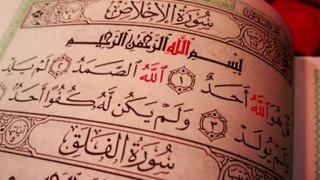 سُورَةُ الإِخْلَاصِ
بِسْمِ اللَّهِ الرَّحْمَٰنِ الرَّحِيمِ
قُلْ هُوَ اللَّهُ أَحَدٌ ١ اللَّهُ الصَّمَدُ ٢ لَمْ يَلِدْ
وَلَمْ يُولَدْ ٣ وَلَمْ يَكُن لَّهُ كُفُوًا أَحَدٌ
سُورَةُ الفَلَقِ